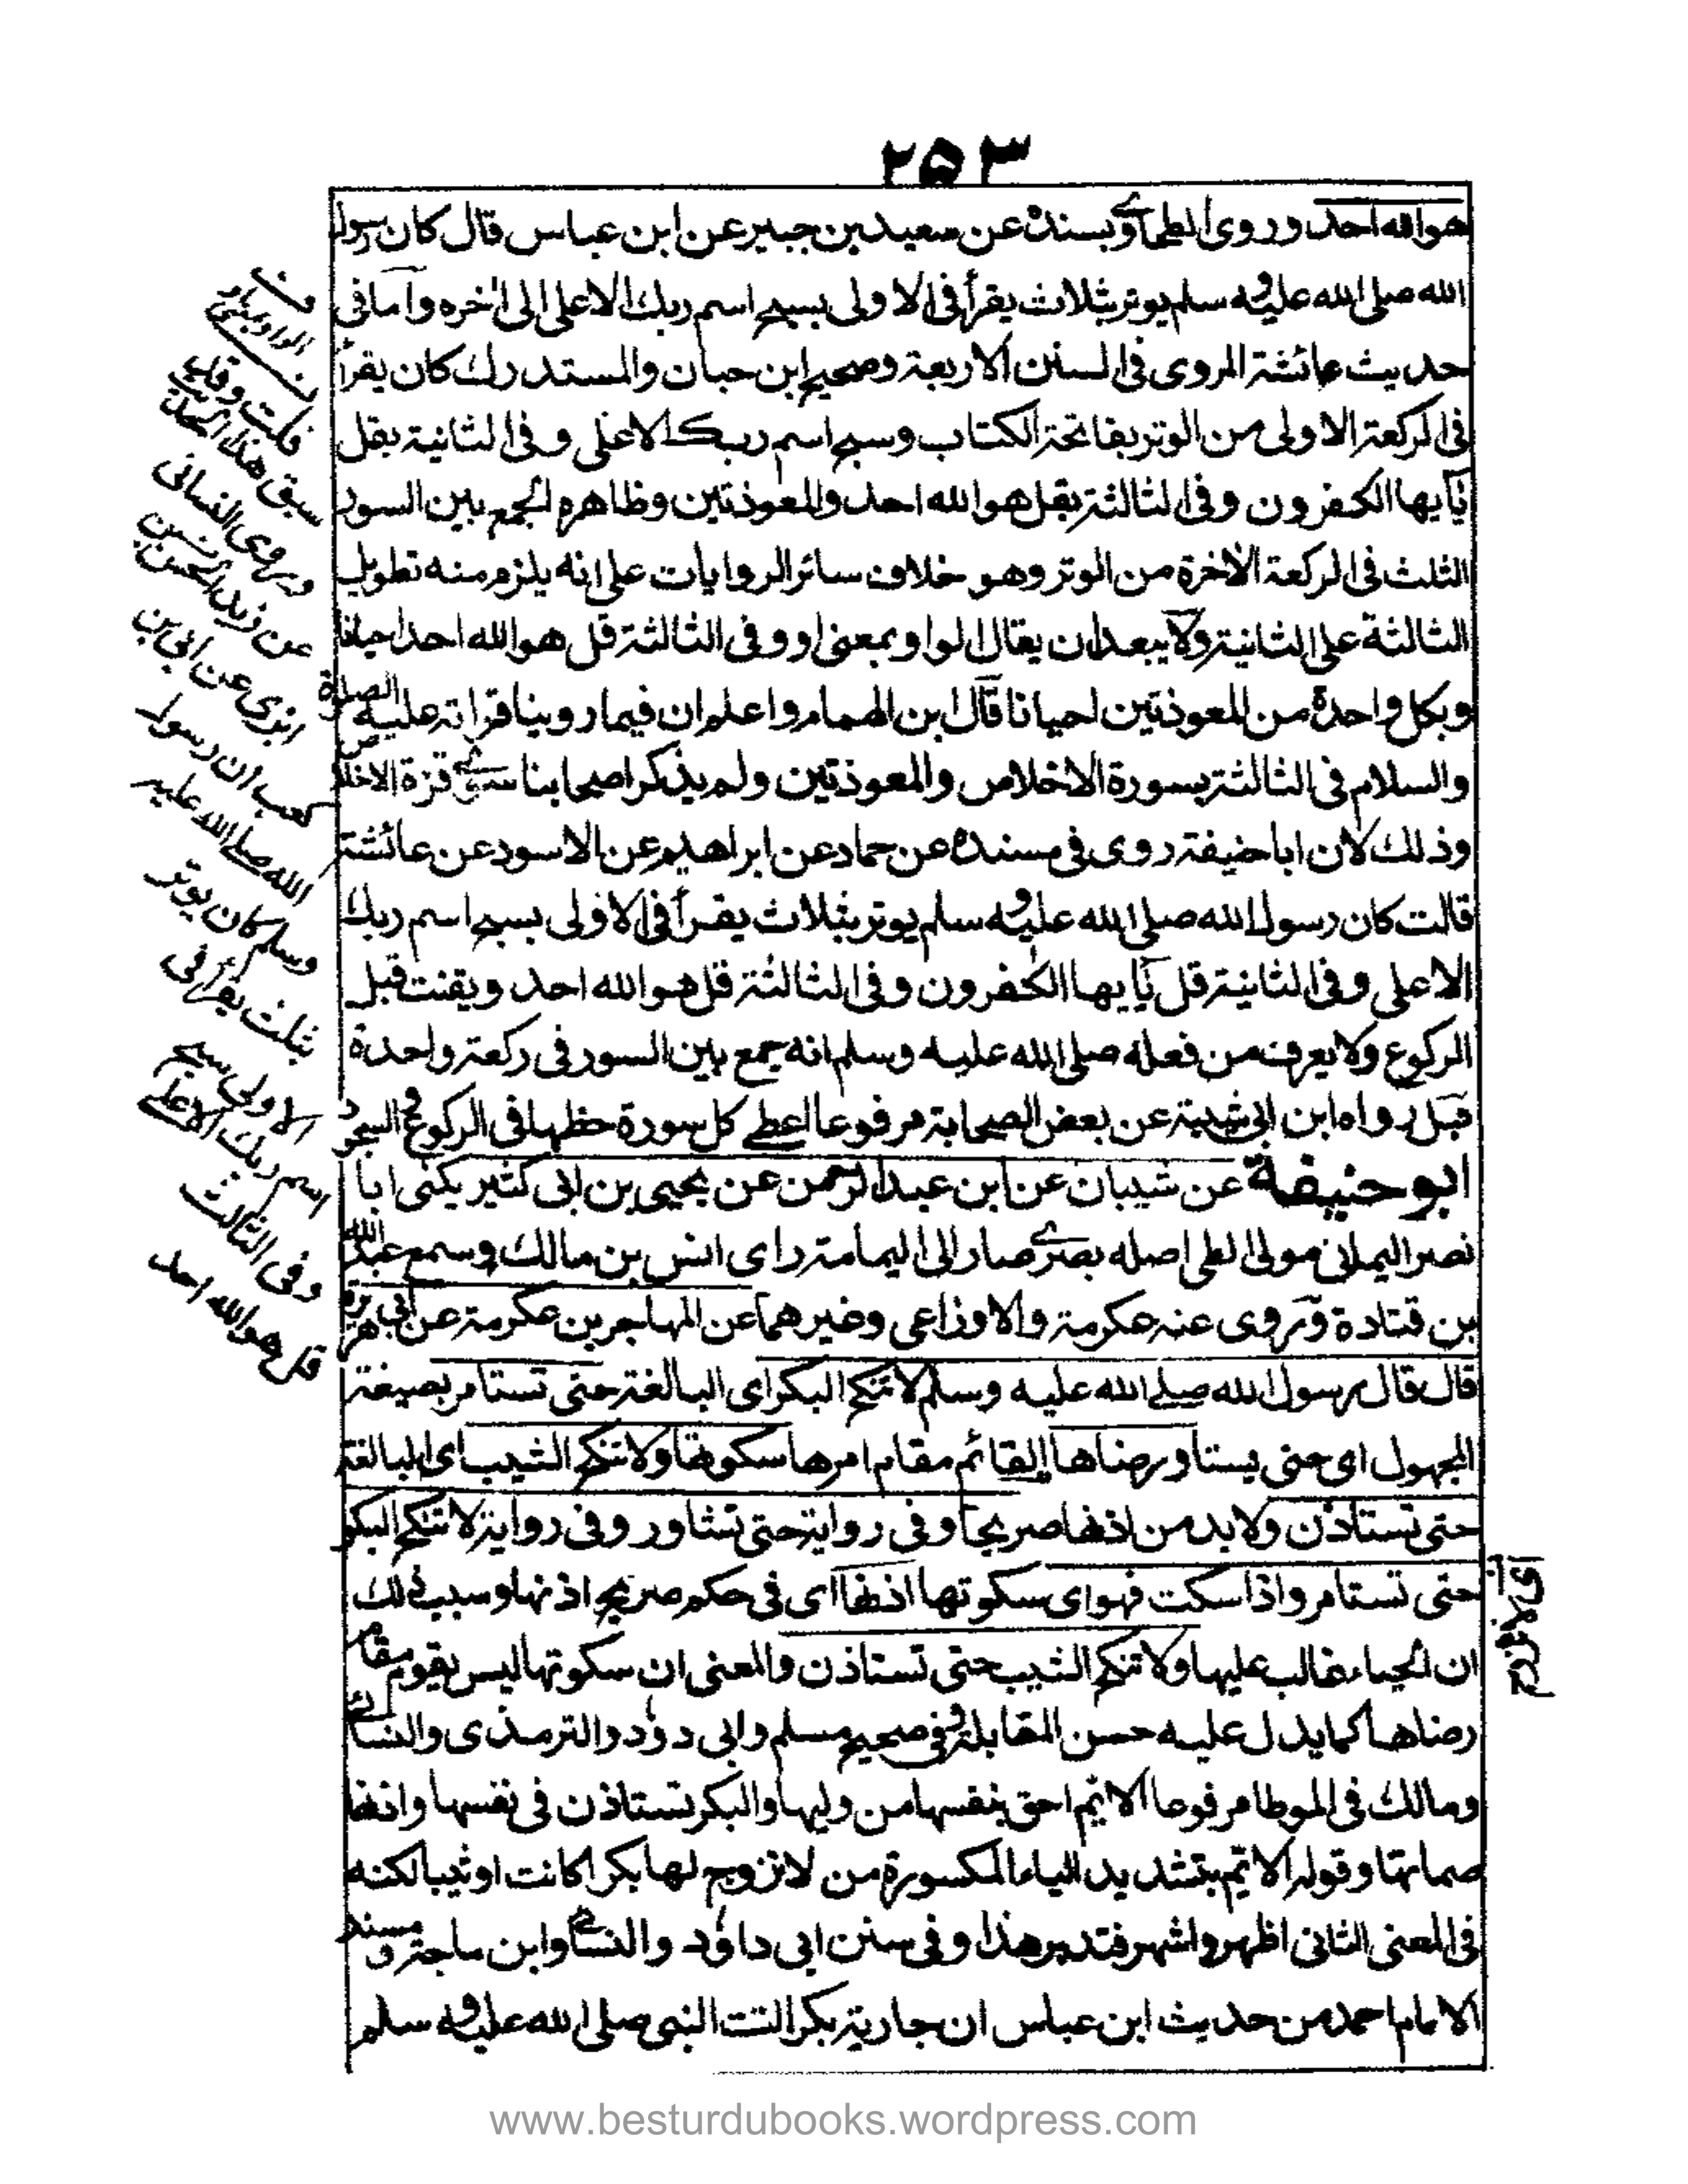 ٢٥٣
هوالله احد وروى الطحاوى بسنده عن سعيد بن جبير عن ابن عباس قال كان رسول
الله صلى الله عليه وسلم يوتر بثلاث يقرأ فى الاولى بسبح اسم ربك الاعلى الى اٰخره وأما فى
حديث عائشة المروى فى السنن الاربعة وصحيح ابن حبان والمستدرك كان يقرأ
فى الركعة الاولى من الوتر بفاتحة الكتاب وسبح اسم ربك الاعلى وفى الثانية بقل
يٰٓايها الكٰفرون وفى الثالثة بقل هوالله احد والمعوذتين وظاهره الجمع بين السور
الثلث فى الركعة الاٰخرة من الوتر وهو خلاف سائر الروايات على انه يلزم منه تطويل
الثالثة على الثانية ولا يبعد ان يقال الواو بمعنى او وفى الثالثة قل هوالله احد احيانا
وبكل واحدة من المعوذتين احيانا قال ابن الهمام واعلم ان فيما روينا قراته عليه الصلوة
والسلام فى الثالثة بسورة الاخلاص والمعوذتين ولم يذكر اصحابنا سوى قرٰة الاخلاص
وذلك لان ابا حنيفة روى فى مسنده عن حماد عن ابراهيم عن الاسود عن عائشة
قالت كان رسول الله صلى الله عليه وسلم يوتر بثلاث يقرأ فى الاولى بسبح اسم ربك
الاعلى وفى الثانية قل يٰٓايها الكٰفرون وفى الثالثة قل هوالله احد ويقنت قبل
الركوع ولا يعرف من فعله صلى الله عليه وسلم انه جمع بين السور فى ركعة واحدة
قبل رواه ابن ابى شيبة عن بعض الصحابة مرفوعا اعطى كل سورة حظها فى الركوع والسجود
ابو حنيفة عن شيبان عن ابن عبد الرحمٰن عن يحيى بن ابى كثير يكنى ابا
نصر اليمانى مولى لطى اصله بصرى صار الى اليمامة راى انس بن مالك وسمع عبد الله
بن قتادة وروى عنه عكرمة والاوزاعى وغيرهما عن المهاجر بن عكرمة عن ابى هريرة
قال قال رسول الله صلى الله عليه وسلم لا تنكح البكر اى البالغة حتى تستامر بصيغة
المجهول اى حتى يستاور رضاها القائم مقام امرها سكوتها ولا تنكح الثيب اى البالغة
حتى تستاذن ولا بد من اذنها صريحا وفى رواية حتى تشاور وفى رواية لا تنكح البكر
حتى تستامر واذا سكت فهو اى سكوتها اذنها اى فى حكم صريح اذنها وسبب ذلك
ان الحياء غالب عليها ولا تنكح الثيب حتى تستاذن والمعنى ان سكوتها ليس يقوم مقام
رضاها كما يدل عليه حسن المقابلة وفى صحيح مسلم وابى دوٗد والترمذى والنسائى
ومالك فى الموطا مرفوعا الايّم احق بنفسها من وليها والبكر تستاذن فى نفسها واذنها
صماتها وقوله الايّم بتشديد الياء المكسورة من لا تزوج لها بكرا كانت او ثيبا لكنه
فى المعنى الثانى اظهر واشهر فتدبر هذا وفى سنن ابى داوٗد والنسائى وابن ماجة ومسند
الامام احمد من حديث ابن عباس ان جارية بكرا اتت النبى صلى الله عليه وسلم
قلت وقد
سبق هذا الحديث
وروى النسائى
عن ابى بن
كعب ان رسول
الله صلى الله عليه
وسلم كان يوتر
بثلث يقرأ فى
الاولى سبح
اسم ربك الاعلى
وفى الثالث
قل هوالله احد
www.besturdubooks.wordpress.com